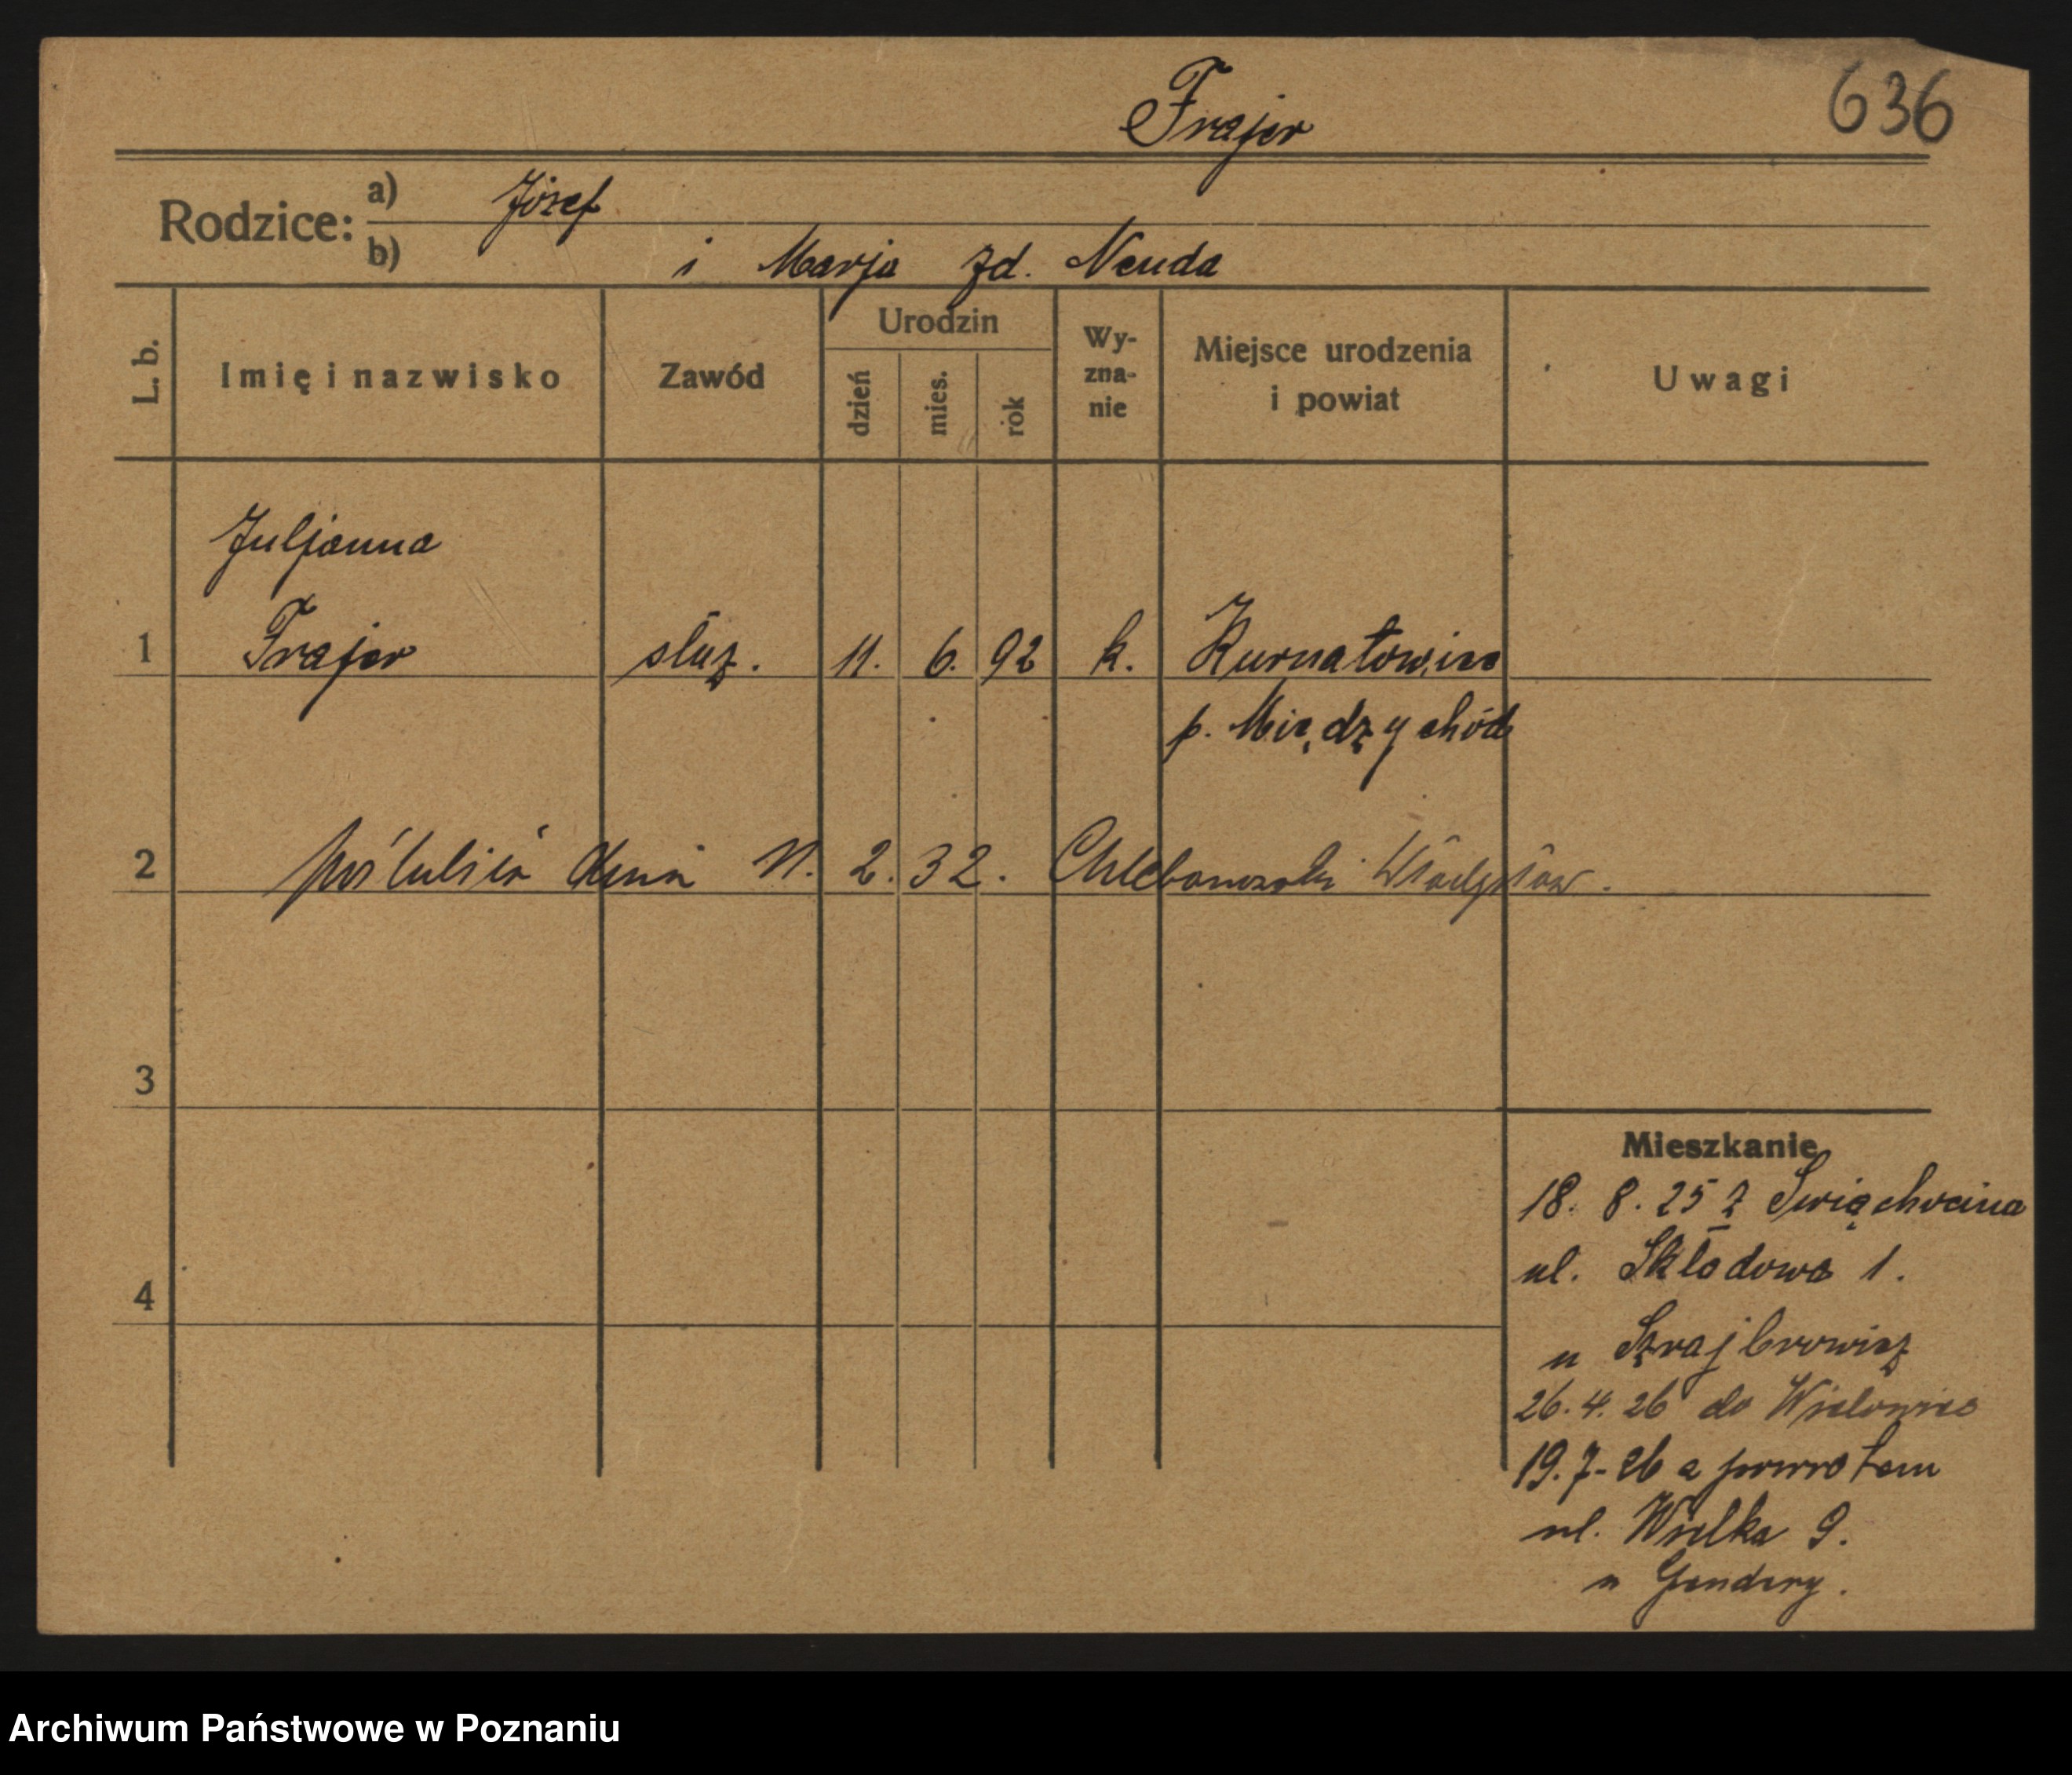 Frajer
636
Rodzice:
a) Józef
b) i Marja zd. Neuda
L. b.
Imię i nazwisko
Zawód
Urodzin
dzień
mies.
rok
Wy-
zna-
nie
Miejsce urodzenia
i powiat
Uwagi
Juljanna
1 Frajer służ. 11. 6. 92 k. Kurnatowice
p. Międzychód
2 poślubiła dnia 11. 2. 32. Władysław.
3
4
Mieszkanie
18. 8. 25 z
ul. Składowa 1.
u Szrajbrowicz
26. 4. 26 do Wielowieś
19. 7-26 z powrotem
ul. Wielka 9.
u Gendery.